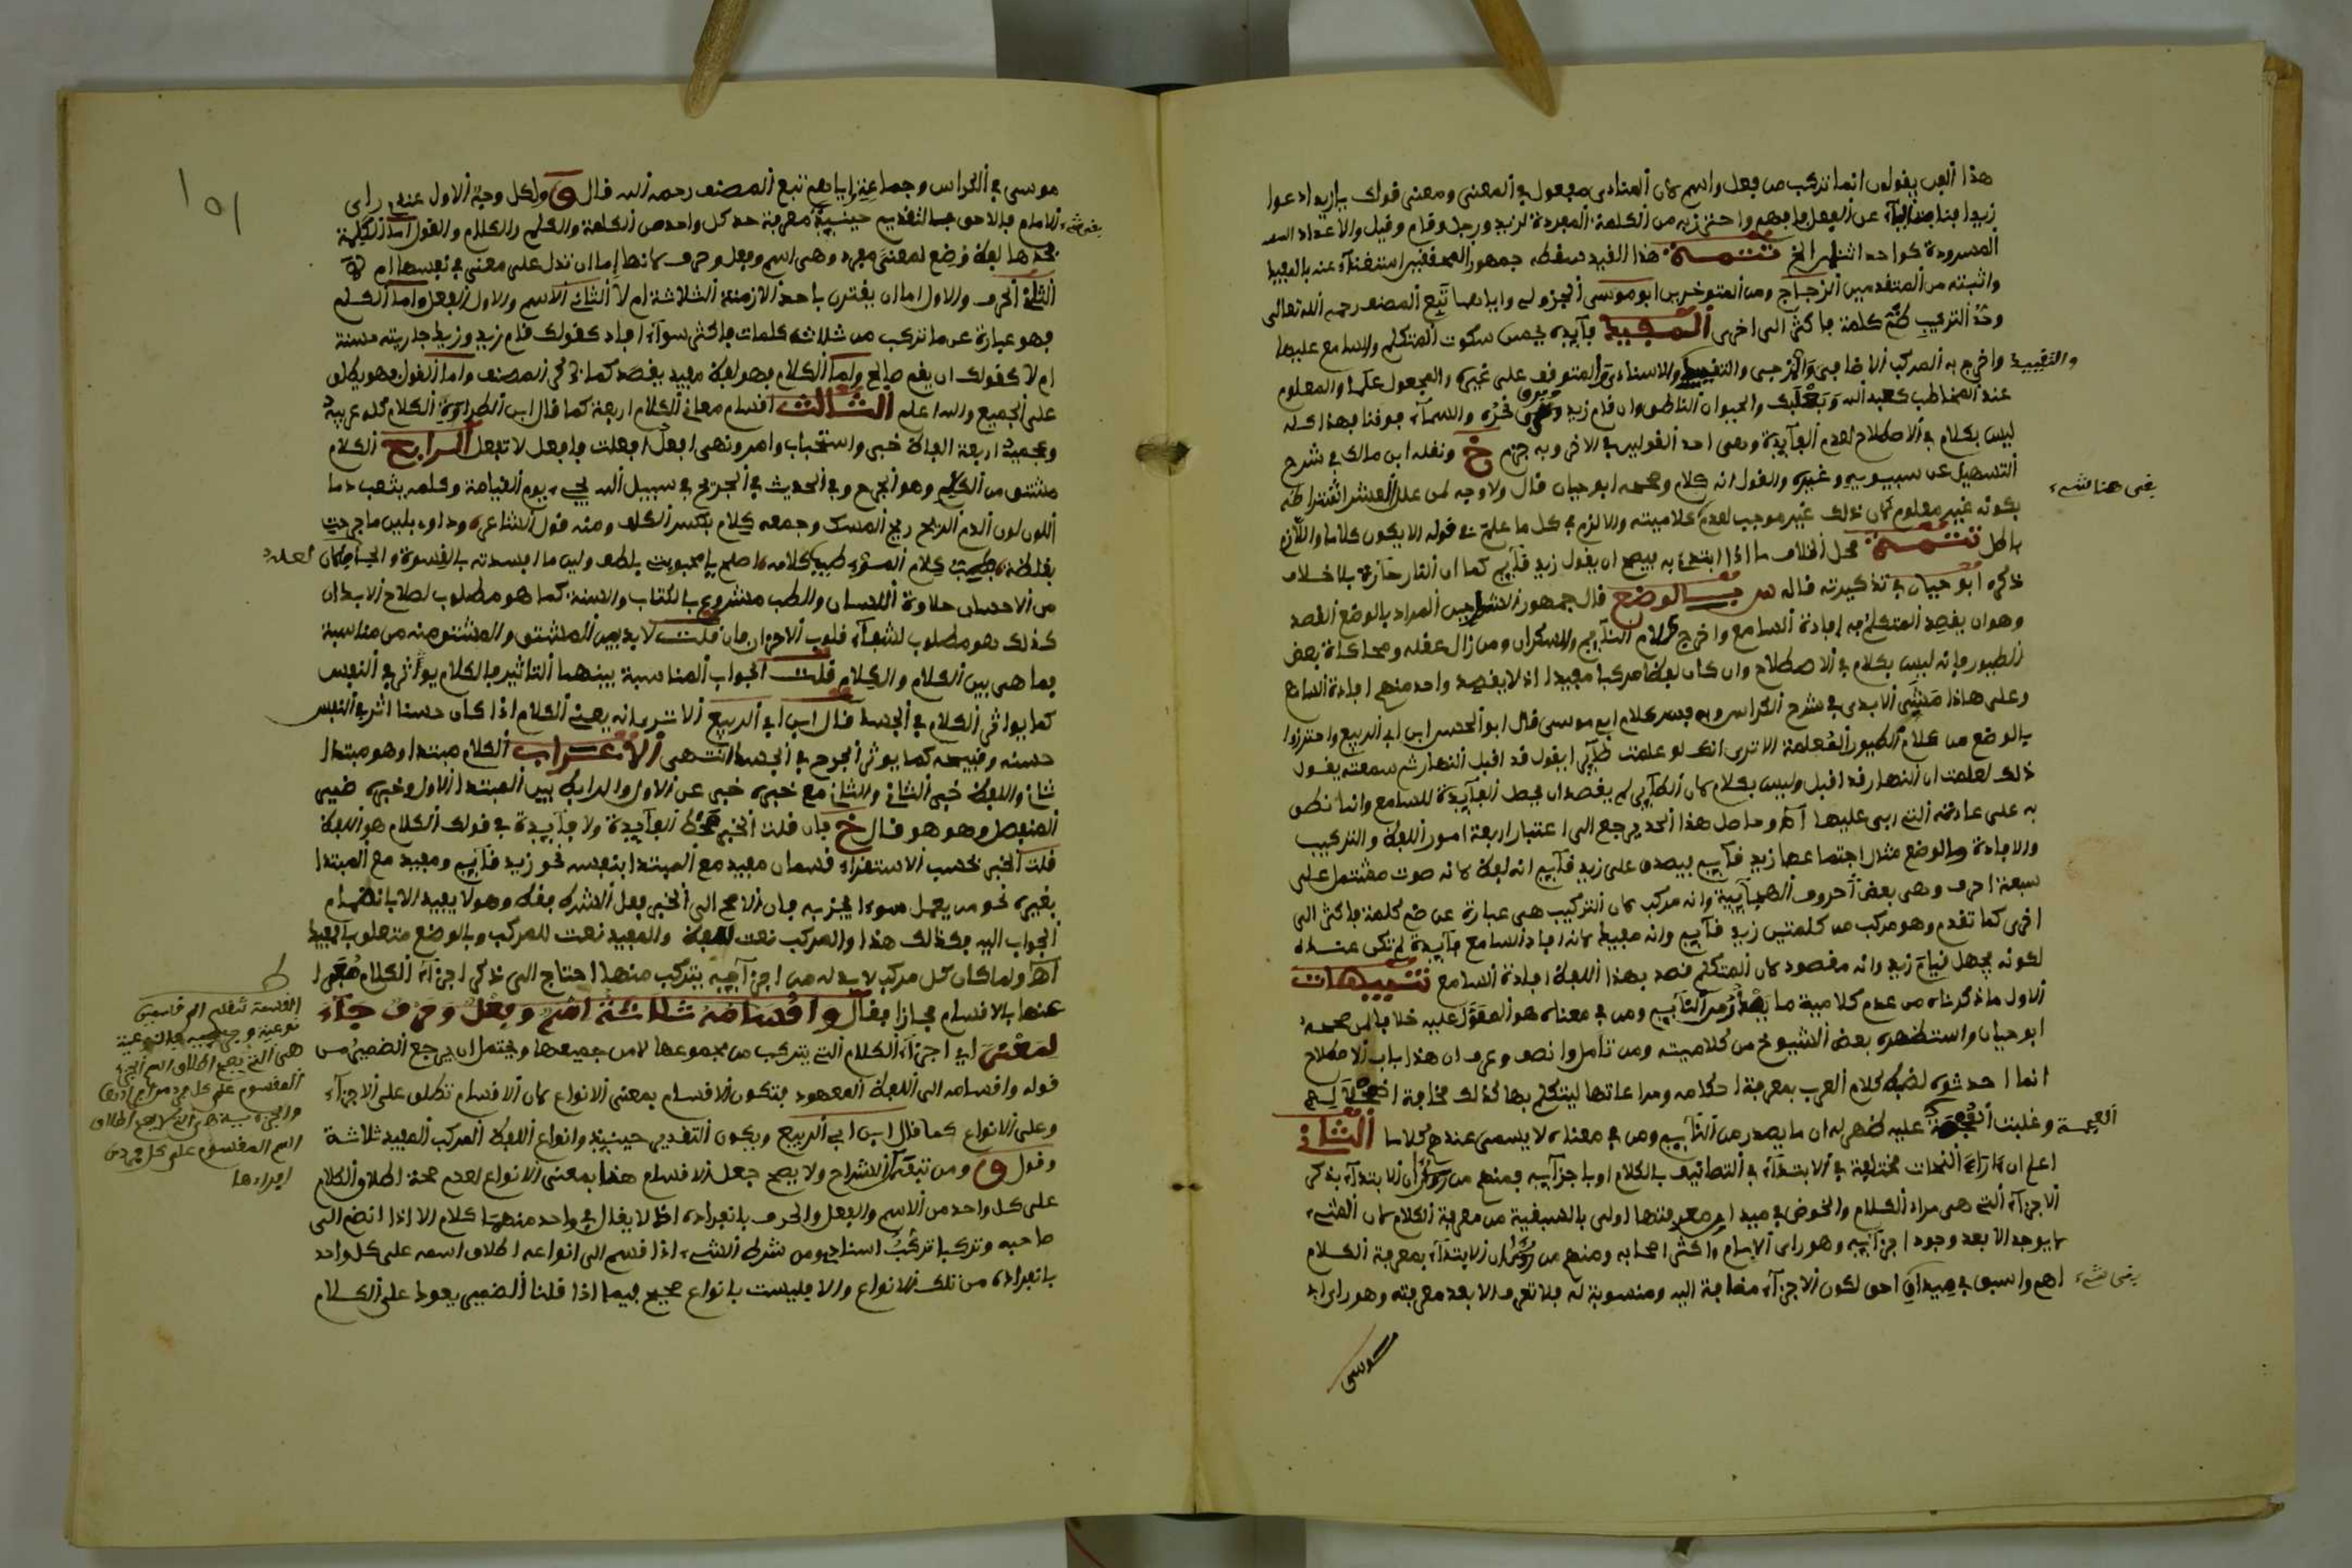 هذا الفن يقولون انما تركب من فعل واسم لان المنادى مفعول في المعنى ومعنى قولك يا زيد ادعوا
زيدا عن الفعل واحترز به من الكلمة المفردة كزيد ورجل وقام وقيل والاعداد
المسرودة كواحد اثنان الخ تتمة هذا القيد سقط جمهور استغناء عنه بالمفيد
واثبته من المتقدمين الزجاج ومن المتوخرين ابو موسى الجزولي واياهما تبع المصنف رحمه الله تعالى
وحد التركيب ضم كلمة فاكثر الى اخرى المفيد فايدة يحسن سكوت المتكلم والسامع عليها
والتقييدي
واخرج به المركب الاضافي والمزجي والاسنادي المتوقف على غيره والمجعول علما والمعلوم
عند المخاطب كعبد الله وبعلبك والحيوان الناطق وان قام زيد والسماء فوقنا فهذا كله
ليس بكلام في الاصطلاح لعدم الفايدة وهى احد القولين في الاخر وبه جزم خ ونقله ابن مالك في شرح
التسهيل عن سيبويه وغيره والقول انه كلام وصححه ابو حيان قال ولا وجه لمن
بكونه غير معلوم لان ذلك غير موجب لعدم كلاميته والا لزم في كل ما علم من قوله الا يكون كلاما واللازم
باطل تتمة محل الخلاف ما اذا ابتدئ به فيصح ان يقول زيد قايم كما ان النار حارة بلا خلاف
ذكره ابو حيان في تذكيرته قاله س بالوضع قال جمهور الشارحين المراد بالوضع القصد
وهو ان يقصد المتكلم به افادة السامع واخرج كلام النايم والسكران ومن زال عقله ومحاكاة بعض
الطيور فانه ليس بكلام في الاصطلاح وان كان لفظا مركبا مفيدا اذ لا يقصد واحد منهم افادة السامع
وعلى هاذا مشى الابدي في شرح الكراس وبه فسر كلام ابي موسى قال ابو الحسن ابن ابي الربيع واحترزوا
بالوضع من كلام الطيور المعلمة الا ترى انك لو علمت طايرا يقول قد اقبل النهار ثم سمعته يقول
ذلك لعلمت ان النهار قد اقبل وليس بكلام لان الطاير لم يقصد ان يحصل الفايدة للسامع وانما نطق
به على عادته التي ربي عليها اه وحاصل هذا الحد يرجع الى اعتبار اربعة امور اللفظ والتركيب
والافادة والوضع مثال اجتماعها زيد قايم فيصدق على زيد قايم انه لفظ لانه صوت مشتمل على
سبعة احرف وهى بعض احروف الهجايية وانه مركب لان التركيب هى عبارة عن ضم كلمة فاكثر الى
اخرى كما تقدم وهو مركب من كلمتين زيد قايم وانه مفيد لانه افاد السامع فايدة لم تكن عنده
لكونه يجهل قيام زيد وانه مقصود لان المتكلم قصد بهذا اللفظ افادة السامع تنبيهات
الاول ما ذكرناه من عدم كلامية ما يصدر من النايم ومن في معناه هو المعول عليه خلافا لمن صححه
ابو حيان واستظهره بعض الشيوخ من كلاميته ومن تامل وانصف وعرف ان هذا باب الاصطلاح
انما احدثوه لضبط كلام العرب بمعرفة احكامه ومراعاتها ليتكلم بها كذلك مخافة
العجمة وغلبت عليه ظهر له ان ما يصدر من النايم ومن في معناه لا يسمى عندهم كلاما الثاني
اعلم ان اراء النحات مختلفة في الابتداء في التصانيف بالكلام او باجزايه فمنهم من روى ان الابتداء بذكر
الاجزاء التي هى مراد الكلام والخوض في ميدان معرفتها اولى بالسبقية من معرفة الكلام لان الشيء
لا يوجد الا بعد وجود اجزايه وهو راى الامام واكثر اصحابه ومنهم من روى ان الابتداء بمعرفة الكلام
اهم واسبق في ميدان احق لكون الاجزاء مضافة اليه ومنسوبة له فلا تعرف الا بعد معرفته وهو راى ابي
موسى
موسى في الكراس وجماعة اياهم تبع المصنف رحمه الله قال ق ولكل وجهة الاول عنده راى
الامام فالاحق التقديم حينئذ معرفة حد كل واحد من الكلمة والكلم والكلام والقول اما الكلمة
فحدها لفظ وضع لمعنى مفرد وهى اسم وفعل وحرف لانها اما ان تدل على معنى في نفسها ام لا
الثاني الحرف والاول اما ان يقترن باحد الازمنة الثلاثة ام لا الثاني الاسم والاول الفعل واما الكلم
فهو عبارة عن ما تركب من ثلاثة كلمات فاكثر سواء افاد كقولك قام زيد وزيد جاريته حسنة
ام لا كقولك ان يقم صالح واما الكلام فهو لفظ مفيد يقصد كما ذكر المصنف واما القول فهو يطلق
على الجميع والله اعلم الثالث اقسام معاني الكلام اربعة كما قال ابن الطراوة الكلام كله عربيه
وعجميه اربعة الفاظ خبر واستخبار وامر ونهي افعل افعلت وافعل لا تفعل الرابع الكلام
مشتق من الكلم وهو الجرح وفي الحديث في الجرح في سبيل الله يجيء يوم القيامة وكلمه يثعب دما
اللون لون الدم الريح ريح المسك وجمعه كلام بكسر الكاف ومنه قول الشاعر وداو بلين ما جرحت
بغلظة فطيب كلام المرء طيب كلامه اصلح يا محبوب بلطف ولين ما افسدته بالقسوة والجفا فكان لعله
من الاحسان حلاوة اللسان والطب مشروع بالكتاب والسنة كما هو مطلوب لصلاح الابدان
كذلك هو مطلوب لشفاء قلوب الاحزان فان قلت لا بد بين المشتق والمشتق منه من مناسبة
فما هى بين الكلام والكلم قلت الجواب المناسبة بينهما التاثير فالكلام يوثر في النفس
كما يوثر الكلام في الجسد قال ابن ابي الربيع الا ترى انه يعني الكلام اذا كان حسنا اثر في النفس
حسنه وقبيحه كما يوثر الجرح في الجسد انتهى الاعراب الكلام مبتدا وهو مبتدا
ثان واللفظ خبر الثاني والثاني مع خبره خبر عن الاول والرابط بين المبتدا الاول وخبره ضمير
المنفصل وهو هو قال خ فان قلت الخبر محط الفايدة ولا فايدة في قولك الكلام هو اللفظ
قلت الخبر بحسب الاستقراء قسمان مفيد مع المبتدا بنفسه نحو زيد قايم ومفيد مع المبتدا
بغيره نحو من يعمل سوءا يجز به فان الاصح ان الخبر فعل الشرط فقط وهو لا يفيد الا بانضمام
الجواب اليه فكذلك هذا والمركب نعت للفظ والمفيد نعت للمركب وبالوضع متعلق بالمفيد
اه ولما كان كل مركب لا بد له من اجزاء يتركب منها احتاج الى ذكر اجزاء الكلام معبرا
عنها بالاقسام مجازا فقال واقسامه ثلاثة اسم وفعل وحرف جاء
لمعنى اي اجزاء الكلام التي يتركب من مجموعها لا من جميعها ويحتمل ان يرجع الضمير من
قوله واقسامه الى اللفظ المعهود فتكون الاقسام بمعنى الانواع لان الاقسام تطلق على الاجزاء
وعلى الانواع كما قال ابن ابي الربيع ويكون التقدير حينئذ وانواع اللفظ المركب المفيد ثلاثة
وقول ق ومن تبعه الشراح ولا يصح جعل الاقسام هنا بمعنى الانواع لعدم صحة اطلاق الكلام
على كل واحد من الاسم والفعل والحرف بانفراده اذ لا يقال في واحد منهما كلام الا اذا انضم الى
صاحبه وتركبا تركب اسنادي ومن شرط الشيء اذا قسم الى انواعه اطلاق اسمه على كل واحد
بانفراده من تلك الانواع والا فليست بانواع صحيح فيما اذا قلنا الضمير يعود على الكلام
ط
القسمة تنقسم الى قسمين
هى التي يصح اطلاق اسم
المقسوم على كل
التي لا يصح اطلاق
اسم المقسوم على كل
افرادها
١٥١